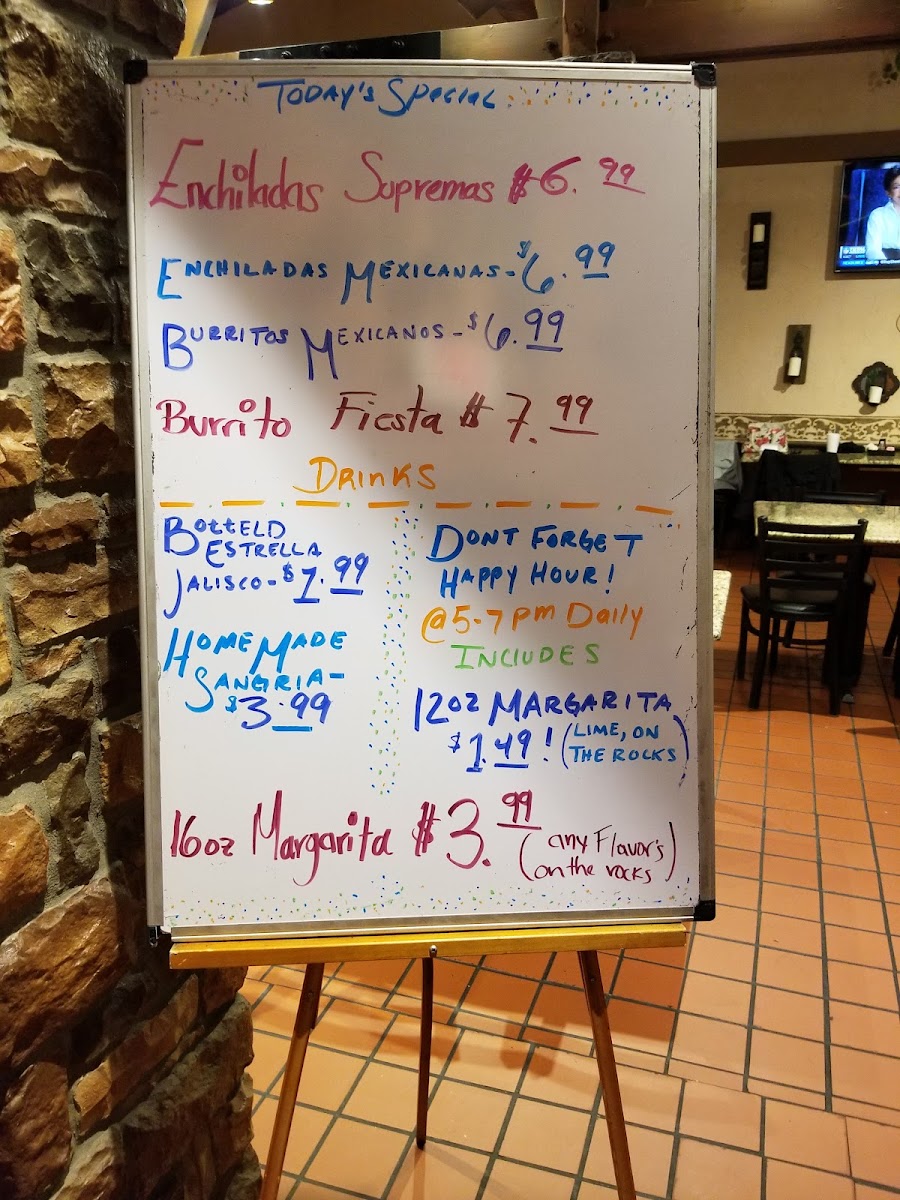 TODAY'S SPECIAL
Enchiladas Supremas $6.99
ENCHILADAS MEXICANAS-$6.99
BURRITOS MEXICANOS-$6.99
Burrito Fiesta $7.99
DRINKS
BOTTELD
ESTRELLA
JALISCO-$1.99
HOMEMADE
SANGRIA-
$3.99
DONT FORGET
HAPPY HOUR!
@5-7pm Daily
INCLUDES
12OZ MARGARITA
$1.49! (LIME, ON
THE ROCKS)
16oz Margarita $3.99
(any Flavor's
on the rocks)